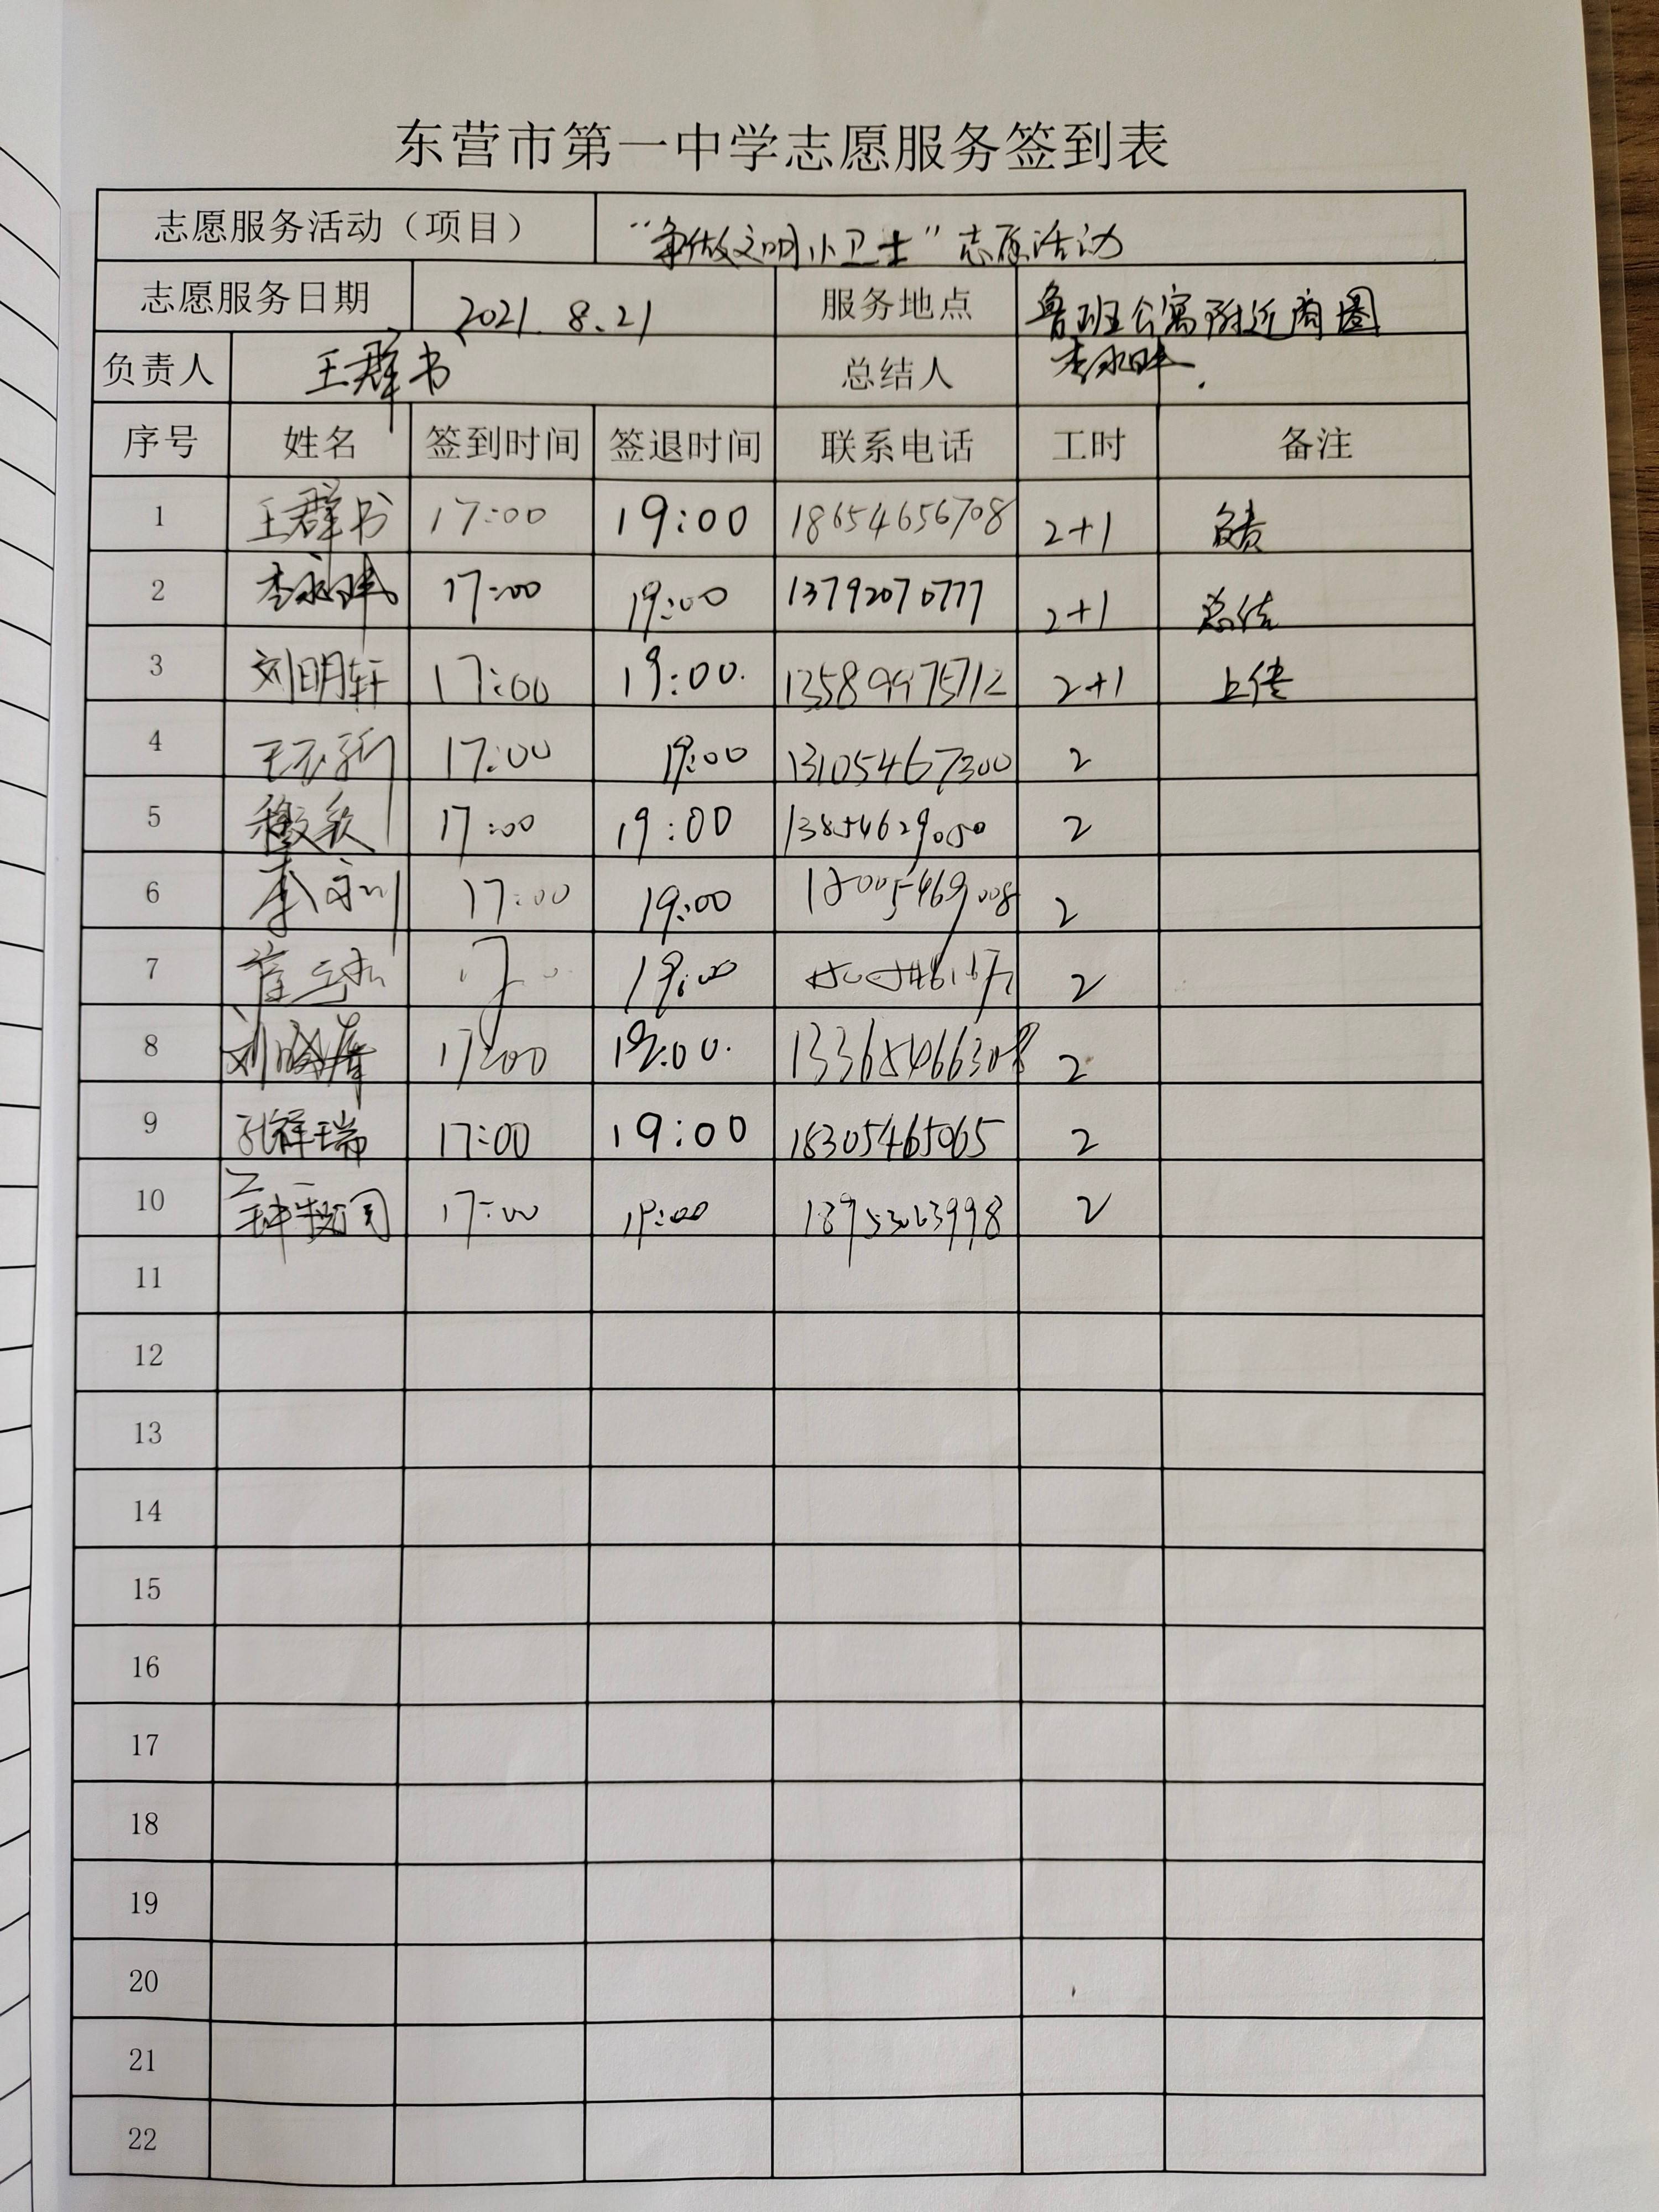 东营市第一中学志愿服务签到表
志愿服务活动（项目） “争做文明小卫士”志愿活动
志愿服务日期 2021.8.21 服务地点 鲁班公寓附近商圈
负责人 王群书 总结人 李永
序号 姓名 签到时间 签退时间 联系电话 工时 备注
1 王群书 17:00 19:00 18654656708 2+1 负责
2 李永 17:00 19:00 13792070777 2+1 总结
3 刘明轩 17:00 19:00. 13589975712 2+1 上传
4 17:00 19:00 13105467300 2
5 17:00 19:00 13854629050 2
6 17:00 19:00 2
7 19:00 2
8 17:00 19:00. 2
9 孔祥瑞 17:00 19:00 18305465065 2
10 17:00 19:00 2
11
12
13
14
15
16
17
18
19
20
21
22